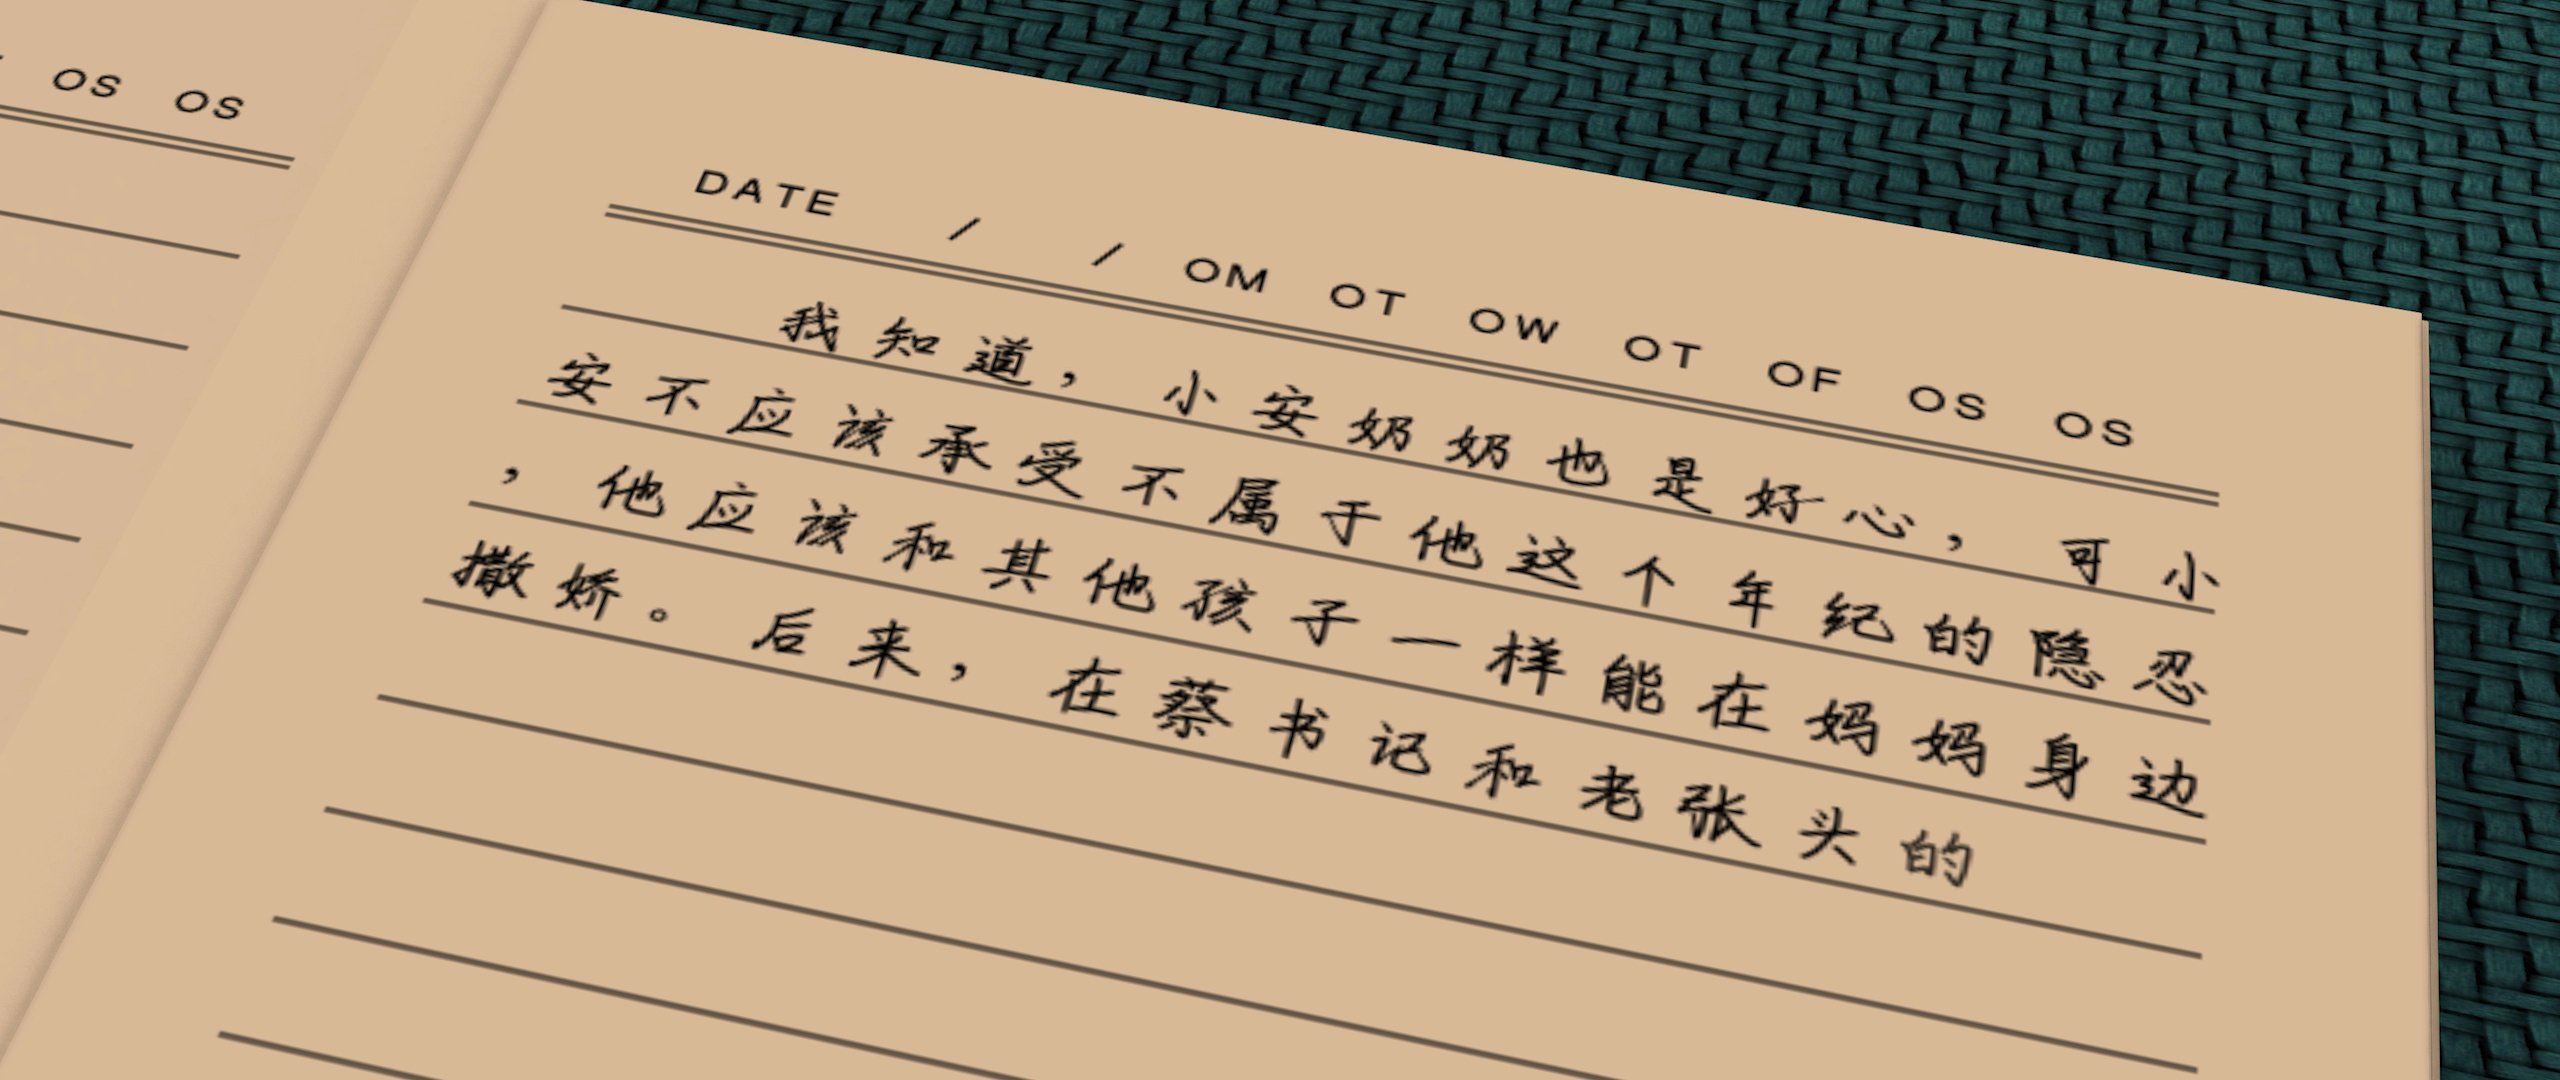 OS OS
DATE / / OM OT OW OT OF OS OS
我知道，小安奶奶也是好心，可小
安不应该承受不属于他这个年纪的隐忍
，他应该和其他孩子一样能在妈妈身边
撒娇。后来，在蔡书记和老张头的